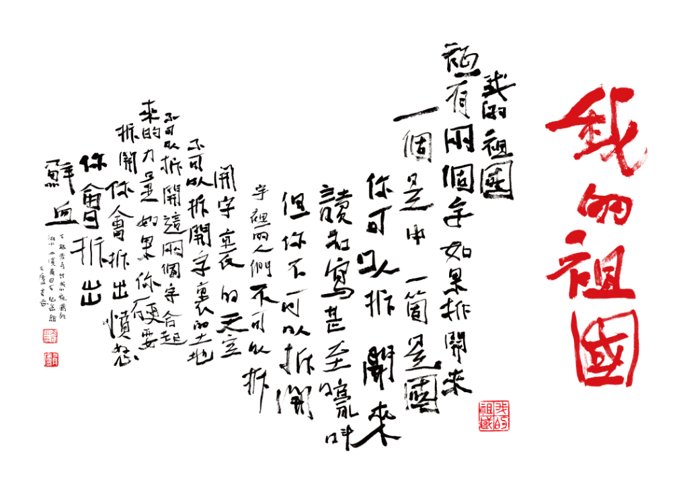 我的祖國
我的祖國
祖有兩個字如果拆開來
一個是中一箇是國
你可以拆開來
讀和寫甚至亂叫
但你不可以拆開
字裡的人們不可以拆
開字裏的天空
不可以拆開字裏的土地
不可以拆開這兩個字合起
來的力量如果你硬要
拆開你會拆出憤怒
你會拆出
鮮血
我的
祖國